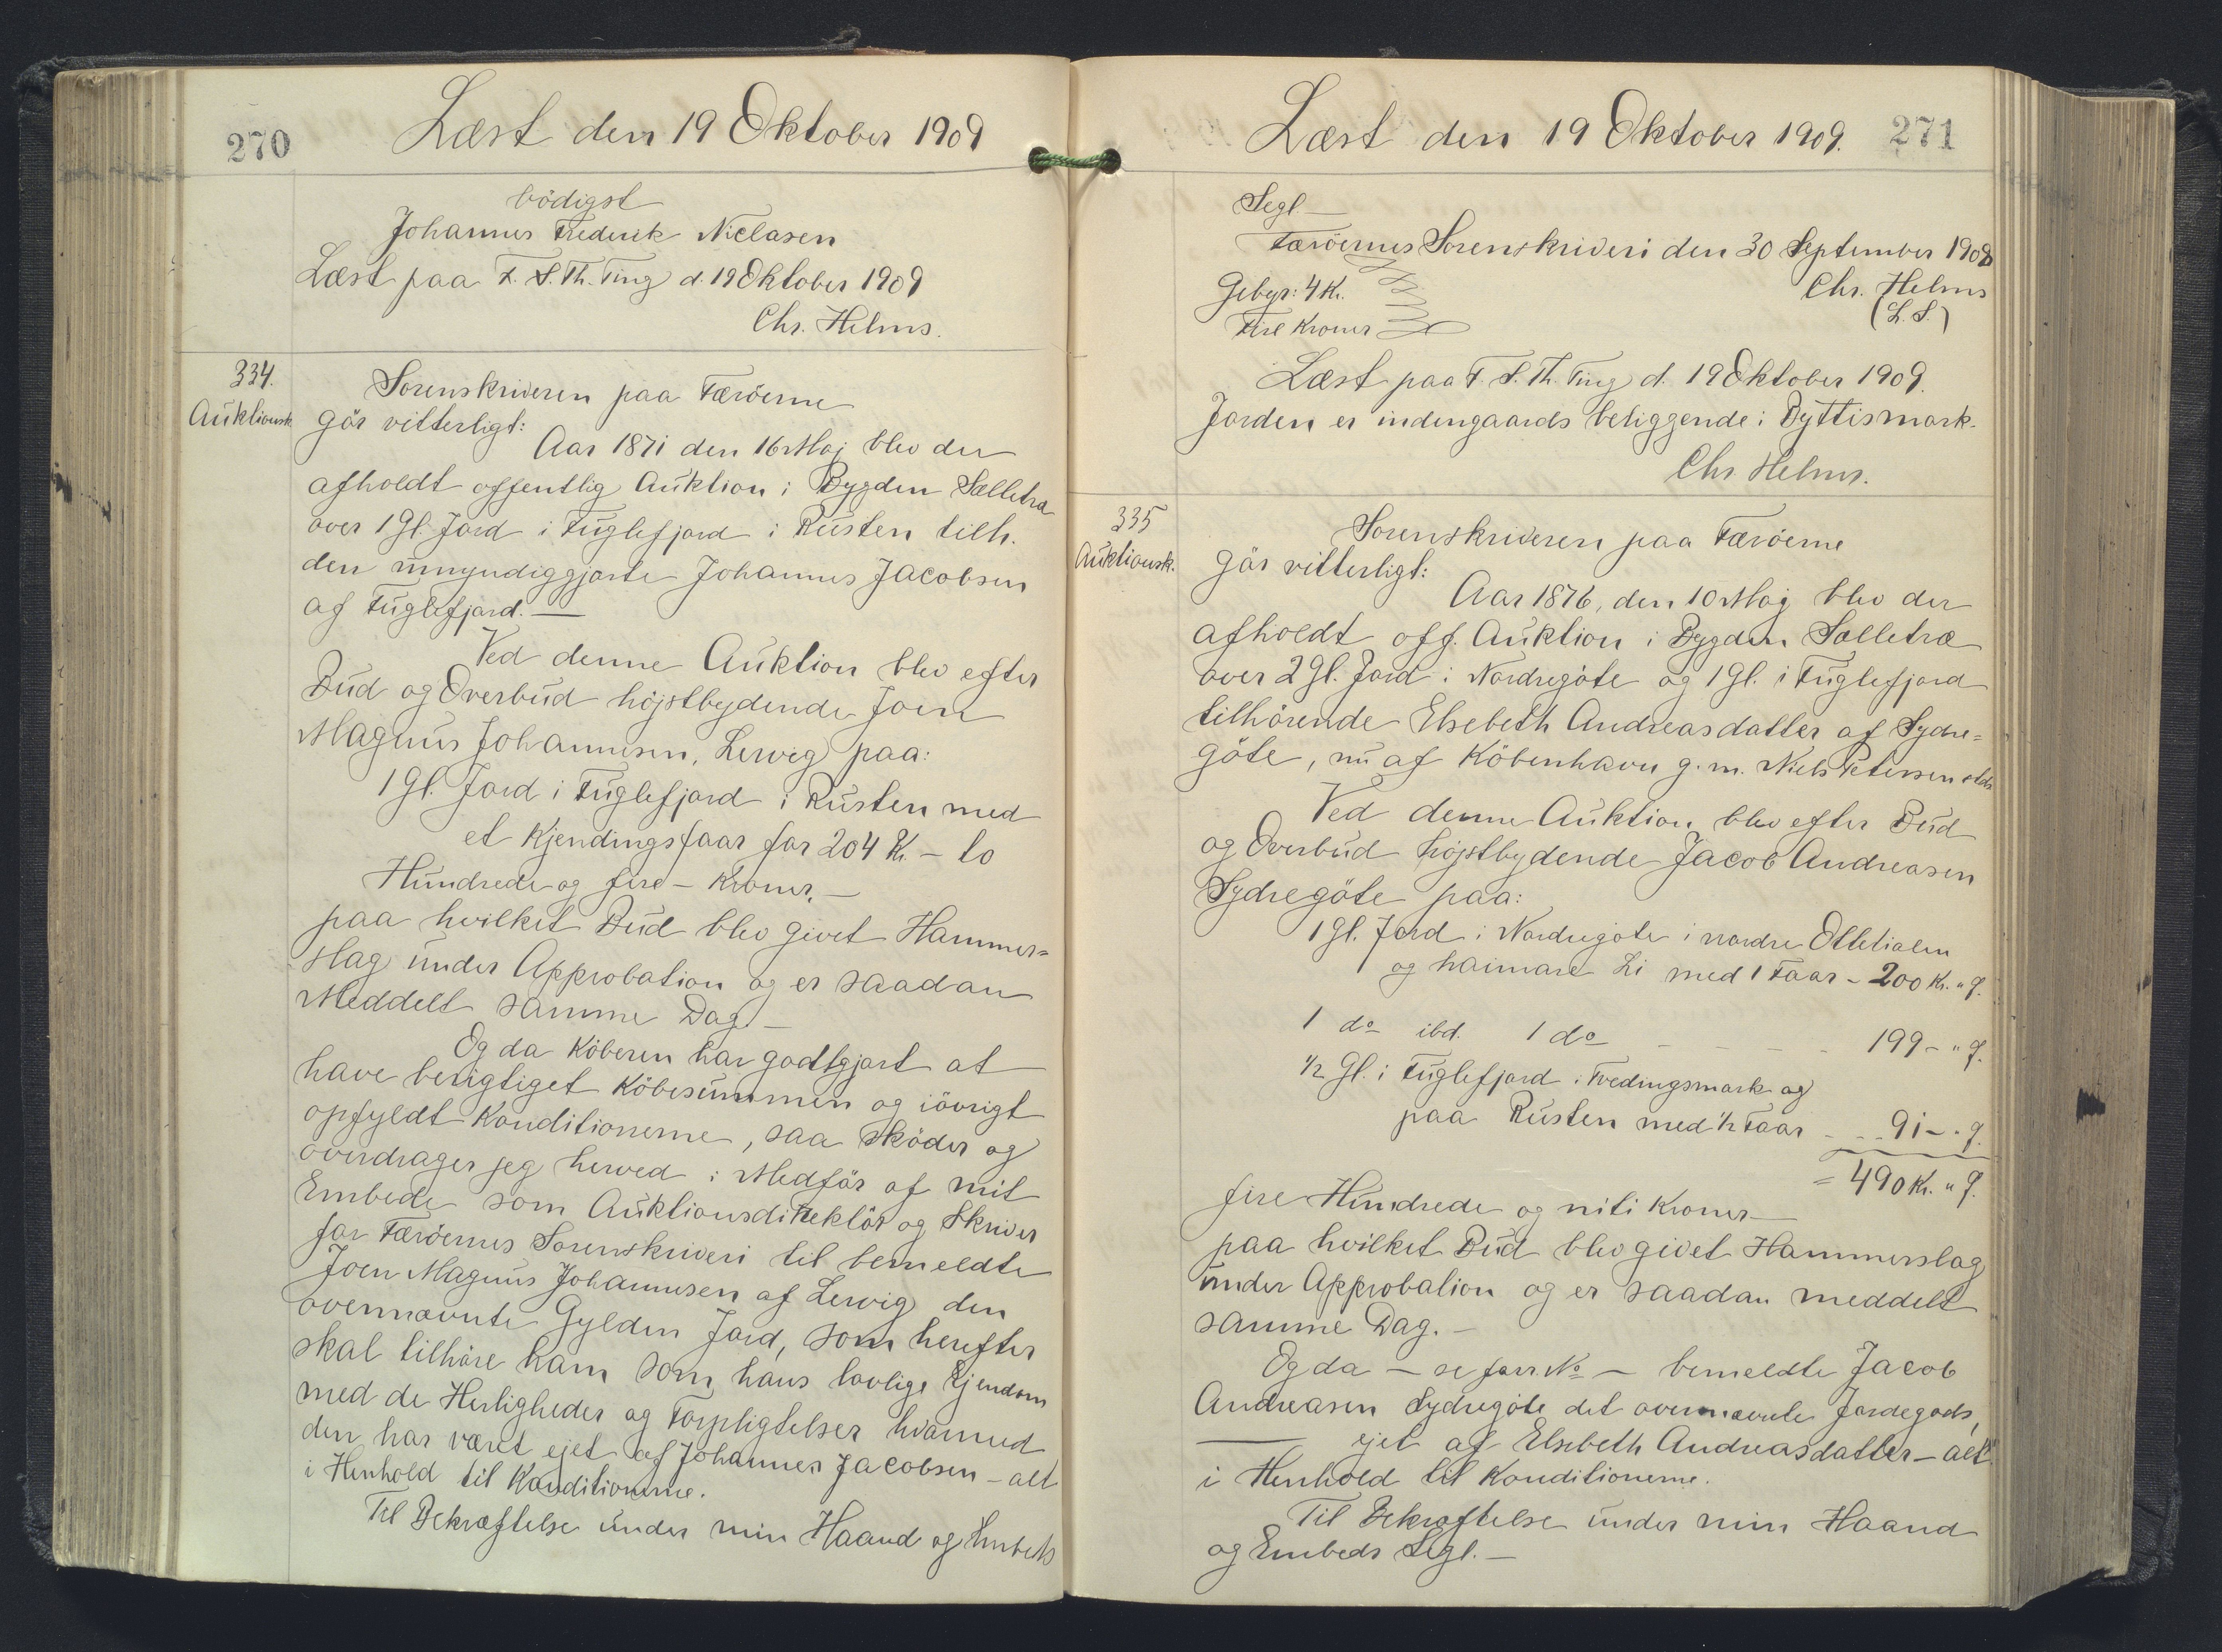 270
Læst den 19 Oktober 1909
bödigst
Johannes Frederik Niclasen
Læst paa F. S. Th. Ting d. 19 Oktober 1909
Chr. Helms.
334.
Auktionsk.
Sorenskriveren paa Færöerne
gör vitterligt:
Aar 1871 den 16 Maj blev der
afholdt offentlig Auktion i Bygden Selletræ
over 1 Gl. Jord i Fuglefjord i Rusten tilh.
den umyndiggjorte Johannes Jacobsen
af Fuglefjord. —
Ved denne Auktion blev efter
Bud og Overbud höjstbydende Joen
Magnus Johannesen, Lervig paa:
1 Gl. Jord i Fuglefjord i Rusten med
et Kjendingsfaar for 204 Kr. – to
Hundrede og fire – Kroner, –
paa hvilket Bud blev givet Hammer=
slag under Approbation og er saadan
Meddelt samme Dag. –
Og da Köberen har godtgjort at
have berigtiget Köbesummen og iövrigt
opfyldt Konditionerne, saa sköder og
overdrager jeg herved i Medför af mit
Embede som Auktionsdirektör og Skriver
for Færöernes Sorenskriveri til bemeldte
Joen Magnus Johannesen af Lervig den
ovennævnte Gylden Jord, som herefter
skal tilhöre ham som hans lovlige Ejendom
med de Herligheder og Forpligtelser hvormed
den har været ejet af Johannes Jacobsen – alt
i Henhold til Konditionerne.
Til Bekræftelse under min Haand og Embeds
Læst den 19 Oktober 1909. 271
Segl –
Færöernes Sorenskriveri den 30 September 1909
Chr. Helms
(L. S.)
Gebyr: 4 Kr.
Fire Kroner
Læst paa F. S. Th. Ting d. 19 Oktober 1909.
Jorden er indengaards beliggende i Byttismark.
Chr Helms.
335
Auktionsk.
Sorenskriveren paa Færöerne
gör vitterligt:
Aar 1876, den 10 Maj blev der
afholdt off. Auktion i Bygden Selletræ
over 2 Gl. Jord i Nordregöte og 1 Gl. i Fuglefjord
tilhörende Elsebeth Andreasdatter af Sydre=
göte, nu af Köbenhavn g. m. Niels Petersen
Ved denne Auktion blev efter Bud
og Overbud höjstbydende Jacob Andreasen
Sydregöte paa:
1 Gl. Jord i Nordregöte i nordre
og haimare Li med 1 Faar – 200 Kr. " Ø.
1 do ibd. 1 do – – – – 199 – " Ø.
1/2 Gl. i Fuglefjord i Tredingsmark og
paa Rusten med 1/2 Faar – – – 91 – " Ø.
= 490 Kr. " Ø.
fire Hundrede og niti Kroner –
paa hvilket Bud blev givet Hammerslag
under Approbation og er saadan meddelt
samme Dag. –
Og da – se forr. No – bemeldte Jacob
Andreasen Sydregöte det ovennævnte Jordegods,
— ejet af Elsebeth Andreasdatter – alt
i Henhold til Konditionerne.
Til Bekræftelse under min Haand
og Embeds Segl. –